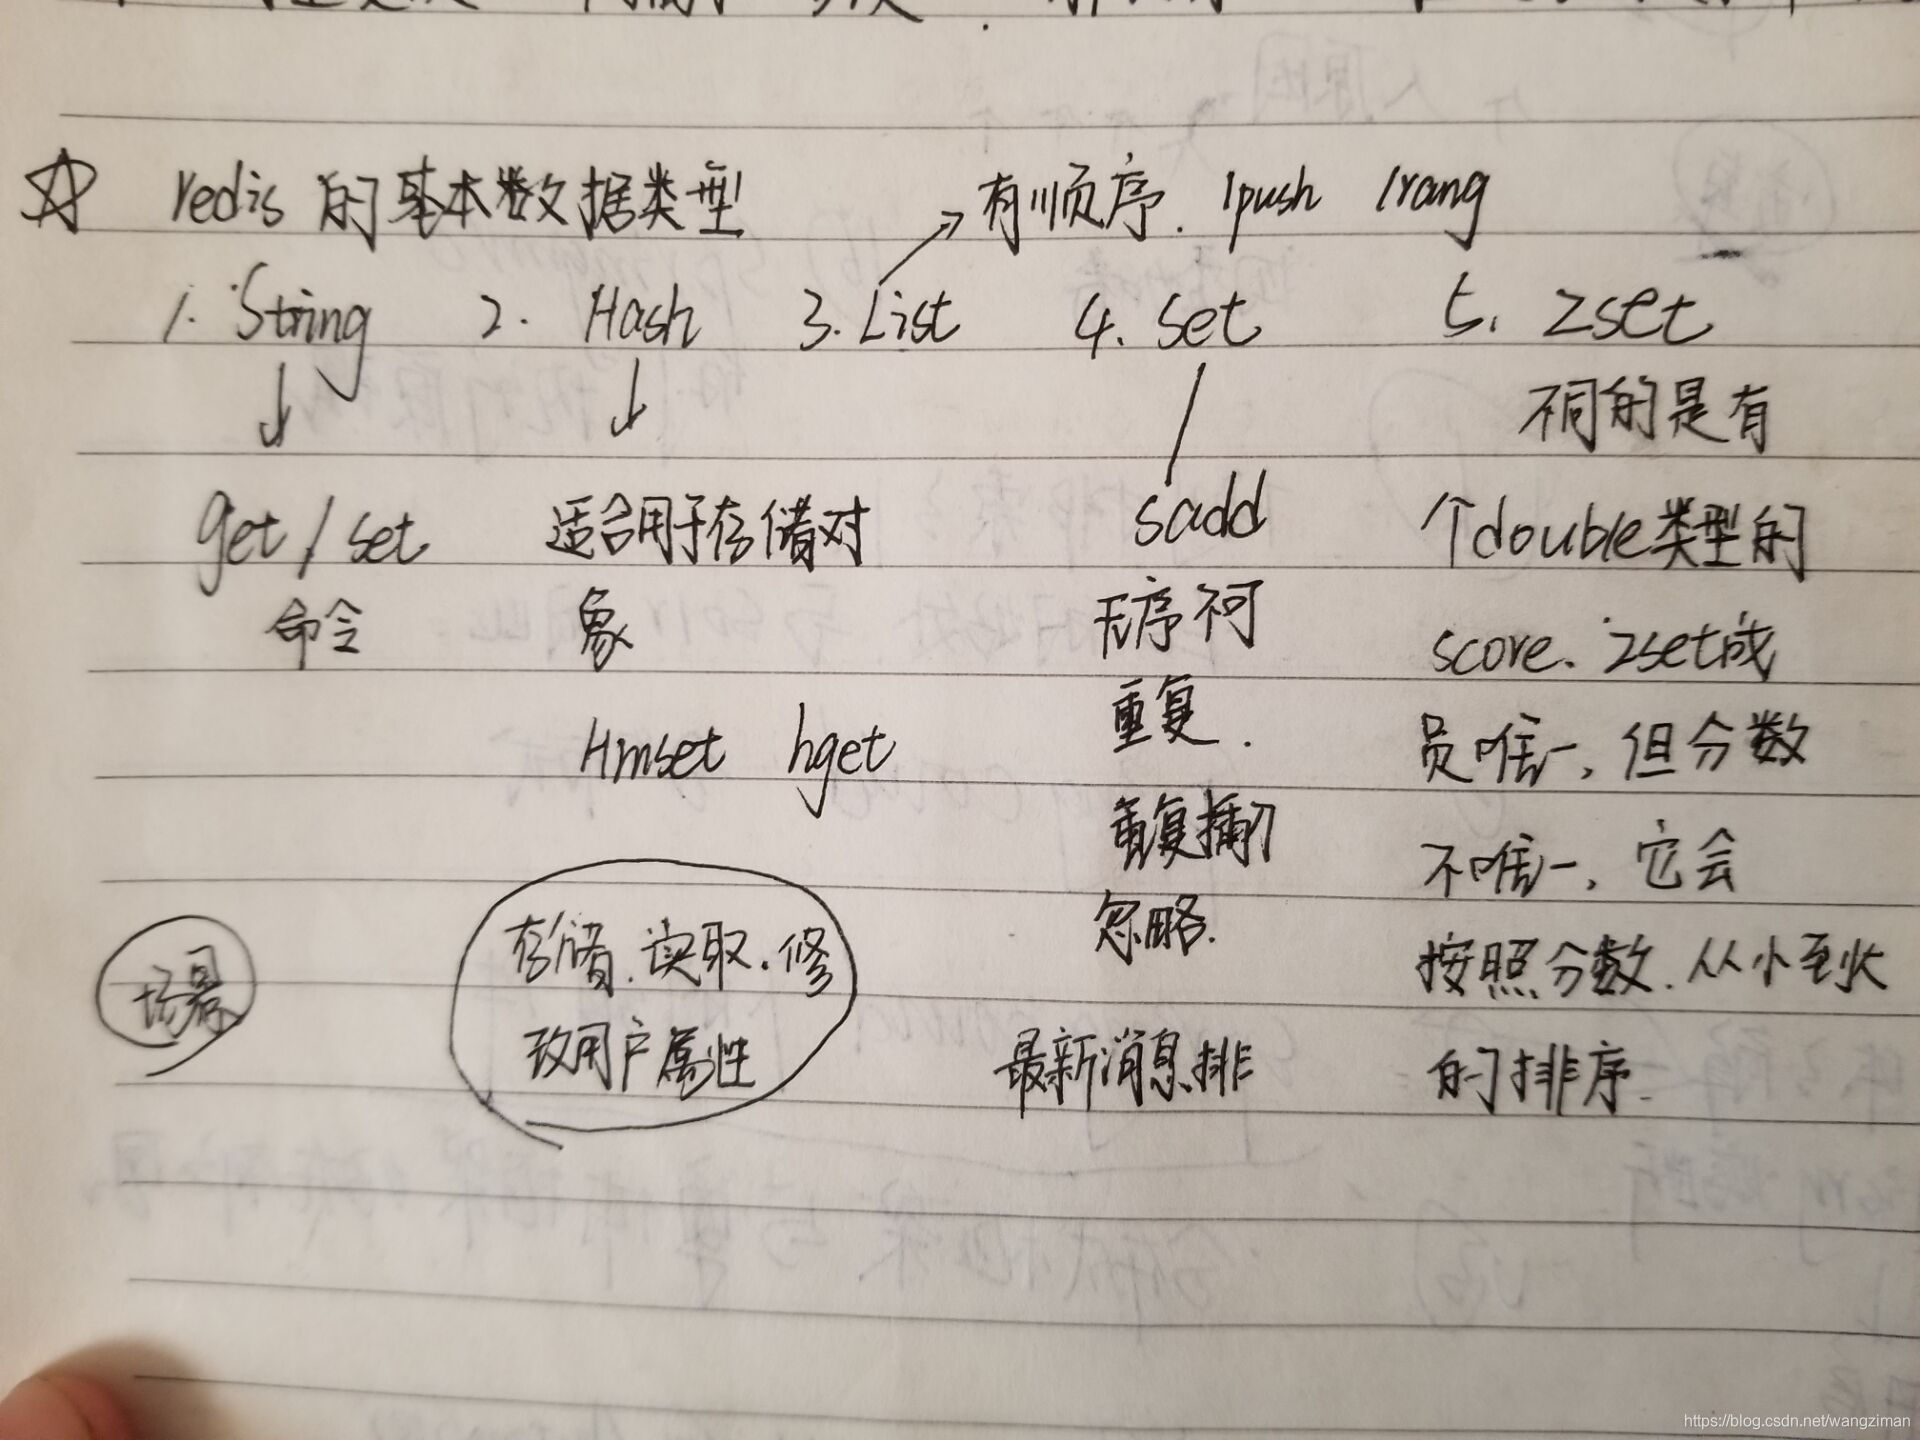 redis 的基本数据类型
有顺序. lpush lrang
1. String 2. Hash 3. List 4. Set 5. Zset
不同的是有
get / set 适合用于存储对 sadd 个double类型的
命令 象 无序不可 score. zset成
Hmset hget 重复. 员唯一, 但分数
重复插入 不唯一, 它会
忽略.
场景 存储.读取.修 按照分数.从小到大
改用户属性 最新消息排 的排序.
https://blog.csdn.net/wangziman